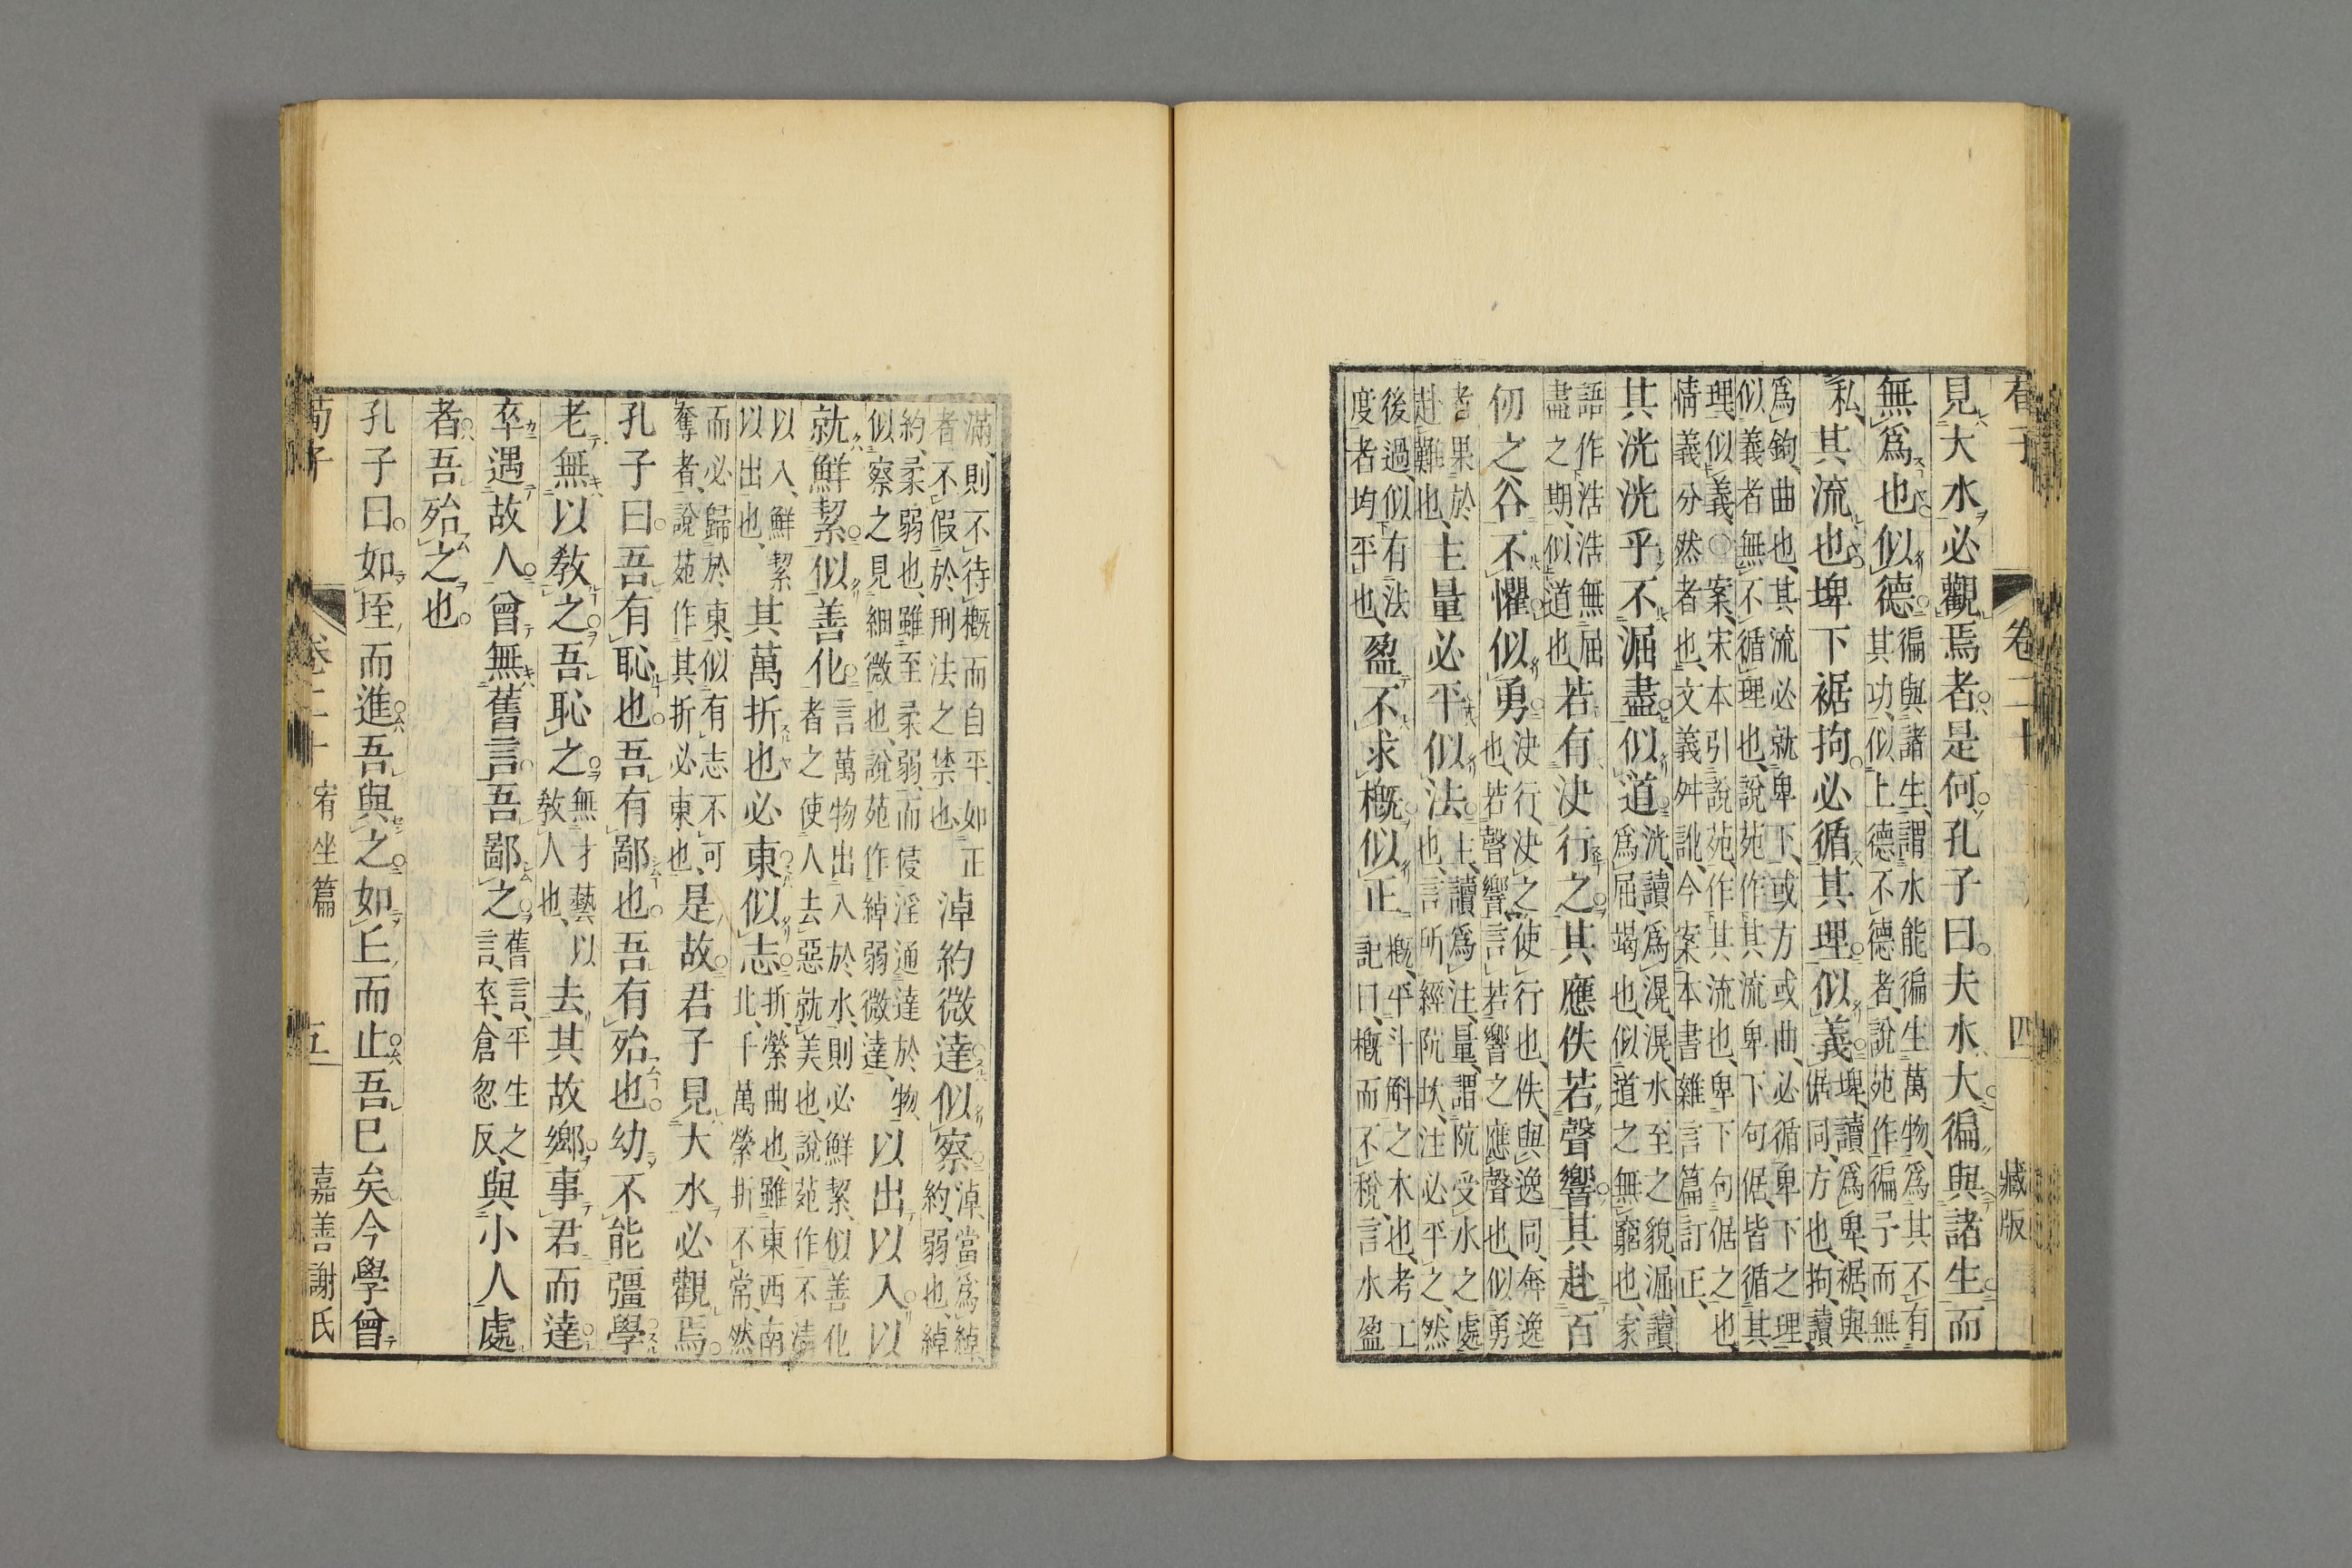 荀子 卷二十 四 藏版
見大水必觀焉者是何孔子曰夫水大徧與諸生而
無爲也似德 徧與諸生謂水能徧生萬物爲其不有
其功似上德不德者說苑作徧予而無
私其流也埤下裾拘必循其理似義 埤讀爲卑裾與
倨同方也拘讀
爲鉤曲也其流必就卑下或方或曲必循卑下之理
似義者無不循理也說苑作其流卑下句倨皆循其
理似義○案宋本引說苑作其流也卑下句倨之也
情義分然者也文義舛訛今案本書雜言篇訂正
其洸洸乎不淈盡似道 洸讀爲滉滉水至之貌淈讀
爲屈竭也似道之無窮也家
語作浩浩無屈
盡之期似道也 若有決行之其應佚若聲響其赴百
仞之谷不懼似勇 決行決之使行也佚與逸同奔逸
也若聲響言若響之應聲也似勇
者果於
赴難也 主量必平似法 主讀爲注量謂阬受水之處
也言所經阬坎注必平之然
後過似有法
度者均平也 盈不求概似正 概平斗斛之木也考工
記曰概而不稅言水盈
滿則不待概而自平如正
者不假於刑法之禁也 淖約微達似察 淖當爲綽
約弱也綽
約柔弱也雖至柔弱而侵淫通達於物
似察之見細微也說苑作綽弱微達 以出以入以
就鮮絜似善化 言萬物出入於水則必鮮絜似善化
者之使人去惡就美也說苑作不淸
以入鮮絜
以出也 其萬折也必東似志 折縈曲也雖東西南
北千萬縈折不常然
而必歸於東似有志不可
奪者說苑作其折必東也 是故君子見大水必觀焉
孔子曰吾有恥也吾有鄙也吾有殆也幼不能彊學
老無以教之吾恥之 無才藝以
教人也 去其故鄉事君而達
卒遇故人曾無舊言吾鄙之 舊言平生之
言卒倉忽反 與小人處
者吾殆之也
孔子曰如垤而進吾與之如丘而止吾已矣今學曾
荀子 卷二十 宥坐篇 五 嘉善謝氏